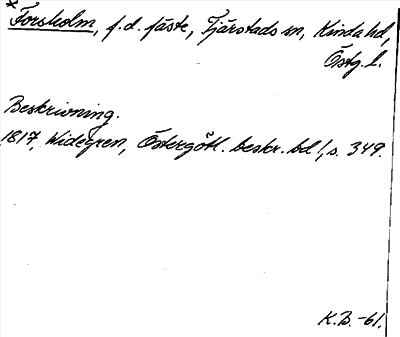 *
Forsholm, f.d. fäste, Tjärstads sn, Kinda hd,
Östg. l.
Beskrivning.
1817, Widegren, Östergötl. beskr. bd 1, s. 349.
K.B. -61.